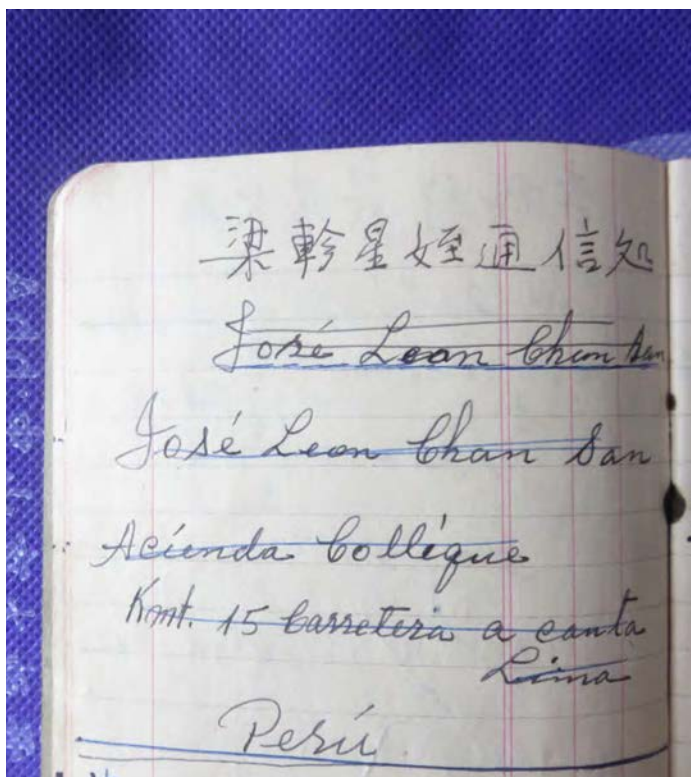 梁軫星姪通信処
José Leon Chun San
José Leon Chan San
Acienda Collique
Kmt. 15 Carretera a canta
Lima
Perú